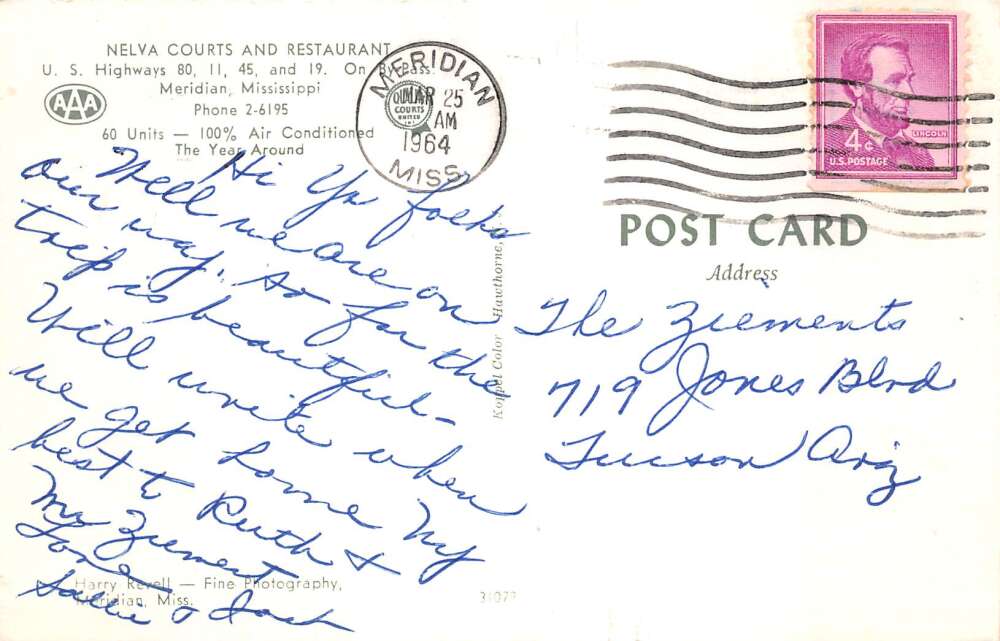 NELVA COURTS AND RESTAURANT
U. S. Highways 80, 11, 45, and 19. On By-Pass.
Meridian, Mississippi
Phone 2-6195
60 Units — 100% Air Conditioned
The Year Around
AAA
QUALITY COURTS UNITED INC.
MERIDIAN
MAR 25
AM
1964
MISS.
LINCOLN
4¢
U.S. POSTAGE
POST CARD
Address
Hi Yu folks
Well we are on
our way. So far the
trip is beautiful-
Will write when
we get home My
best to Ruth &
Mr Ziement
Love
Sallie &
Koppel Color Hawthorne,
The Ziements
719 Jones Blvd
Tucson Ariz
Harry Revell — Fine Photography,
Meridian, Miss.